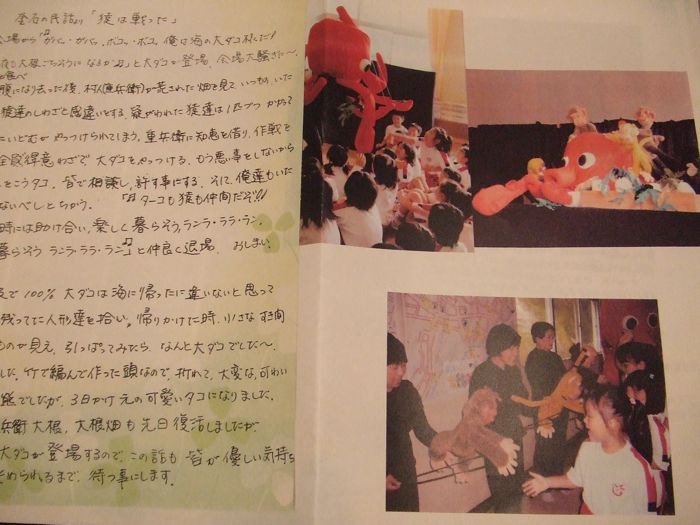 釜石の民話より「猿は戦った」
会場から「ガバー、ガバッ、ボコッ・ボコ、俺は海の大ダコ様だ!
大根ごちそうになるか♪」と大ダコが登場、会場大騒ぎ〜、
食べ
腹になり去った後、村人(重兵衛)が荒された畑を見て、いつも、いた
猿達のしわざと感違いとする、疑がわれた猿達は1匹づつかかって
たいどむがやっつけられてしまう。重兵衛に知恵を借り、作戦を
全員得意わざで大ダコをやっつける、もう悪い事をしないから
とこうタコ、皆で相談し、許す事にする、そして、俺達もいた
ないべしとちかう。「♪タコも猿も仲間だぞ!!
時には助け合い、楽しく暮らそう、ランラ・ララ・ラン、
暮らそう ランラ・ララ・ラン♪」と仲良く退場、おしまい
で100%大ダコは海に帰ったに違いないと思って
残ってた人形達を拾い、帰りかけた時、小さなすき間
ものが見え、引っぱってみたら、なんと大ダコでした〜、
した。竹で編んで作った頭なので、折れて、大変な、可わい
態でしたが、3日かけ元の可愛いタコになりました。
兵衛大根、大根畑も先日復活しましたが
大ダコが登場するので、この話も皆が優しい気持ち
められるまで、待つ事にします。